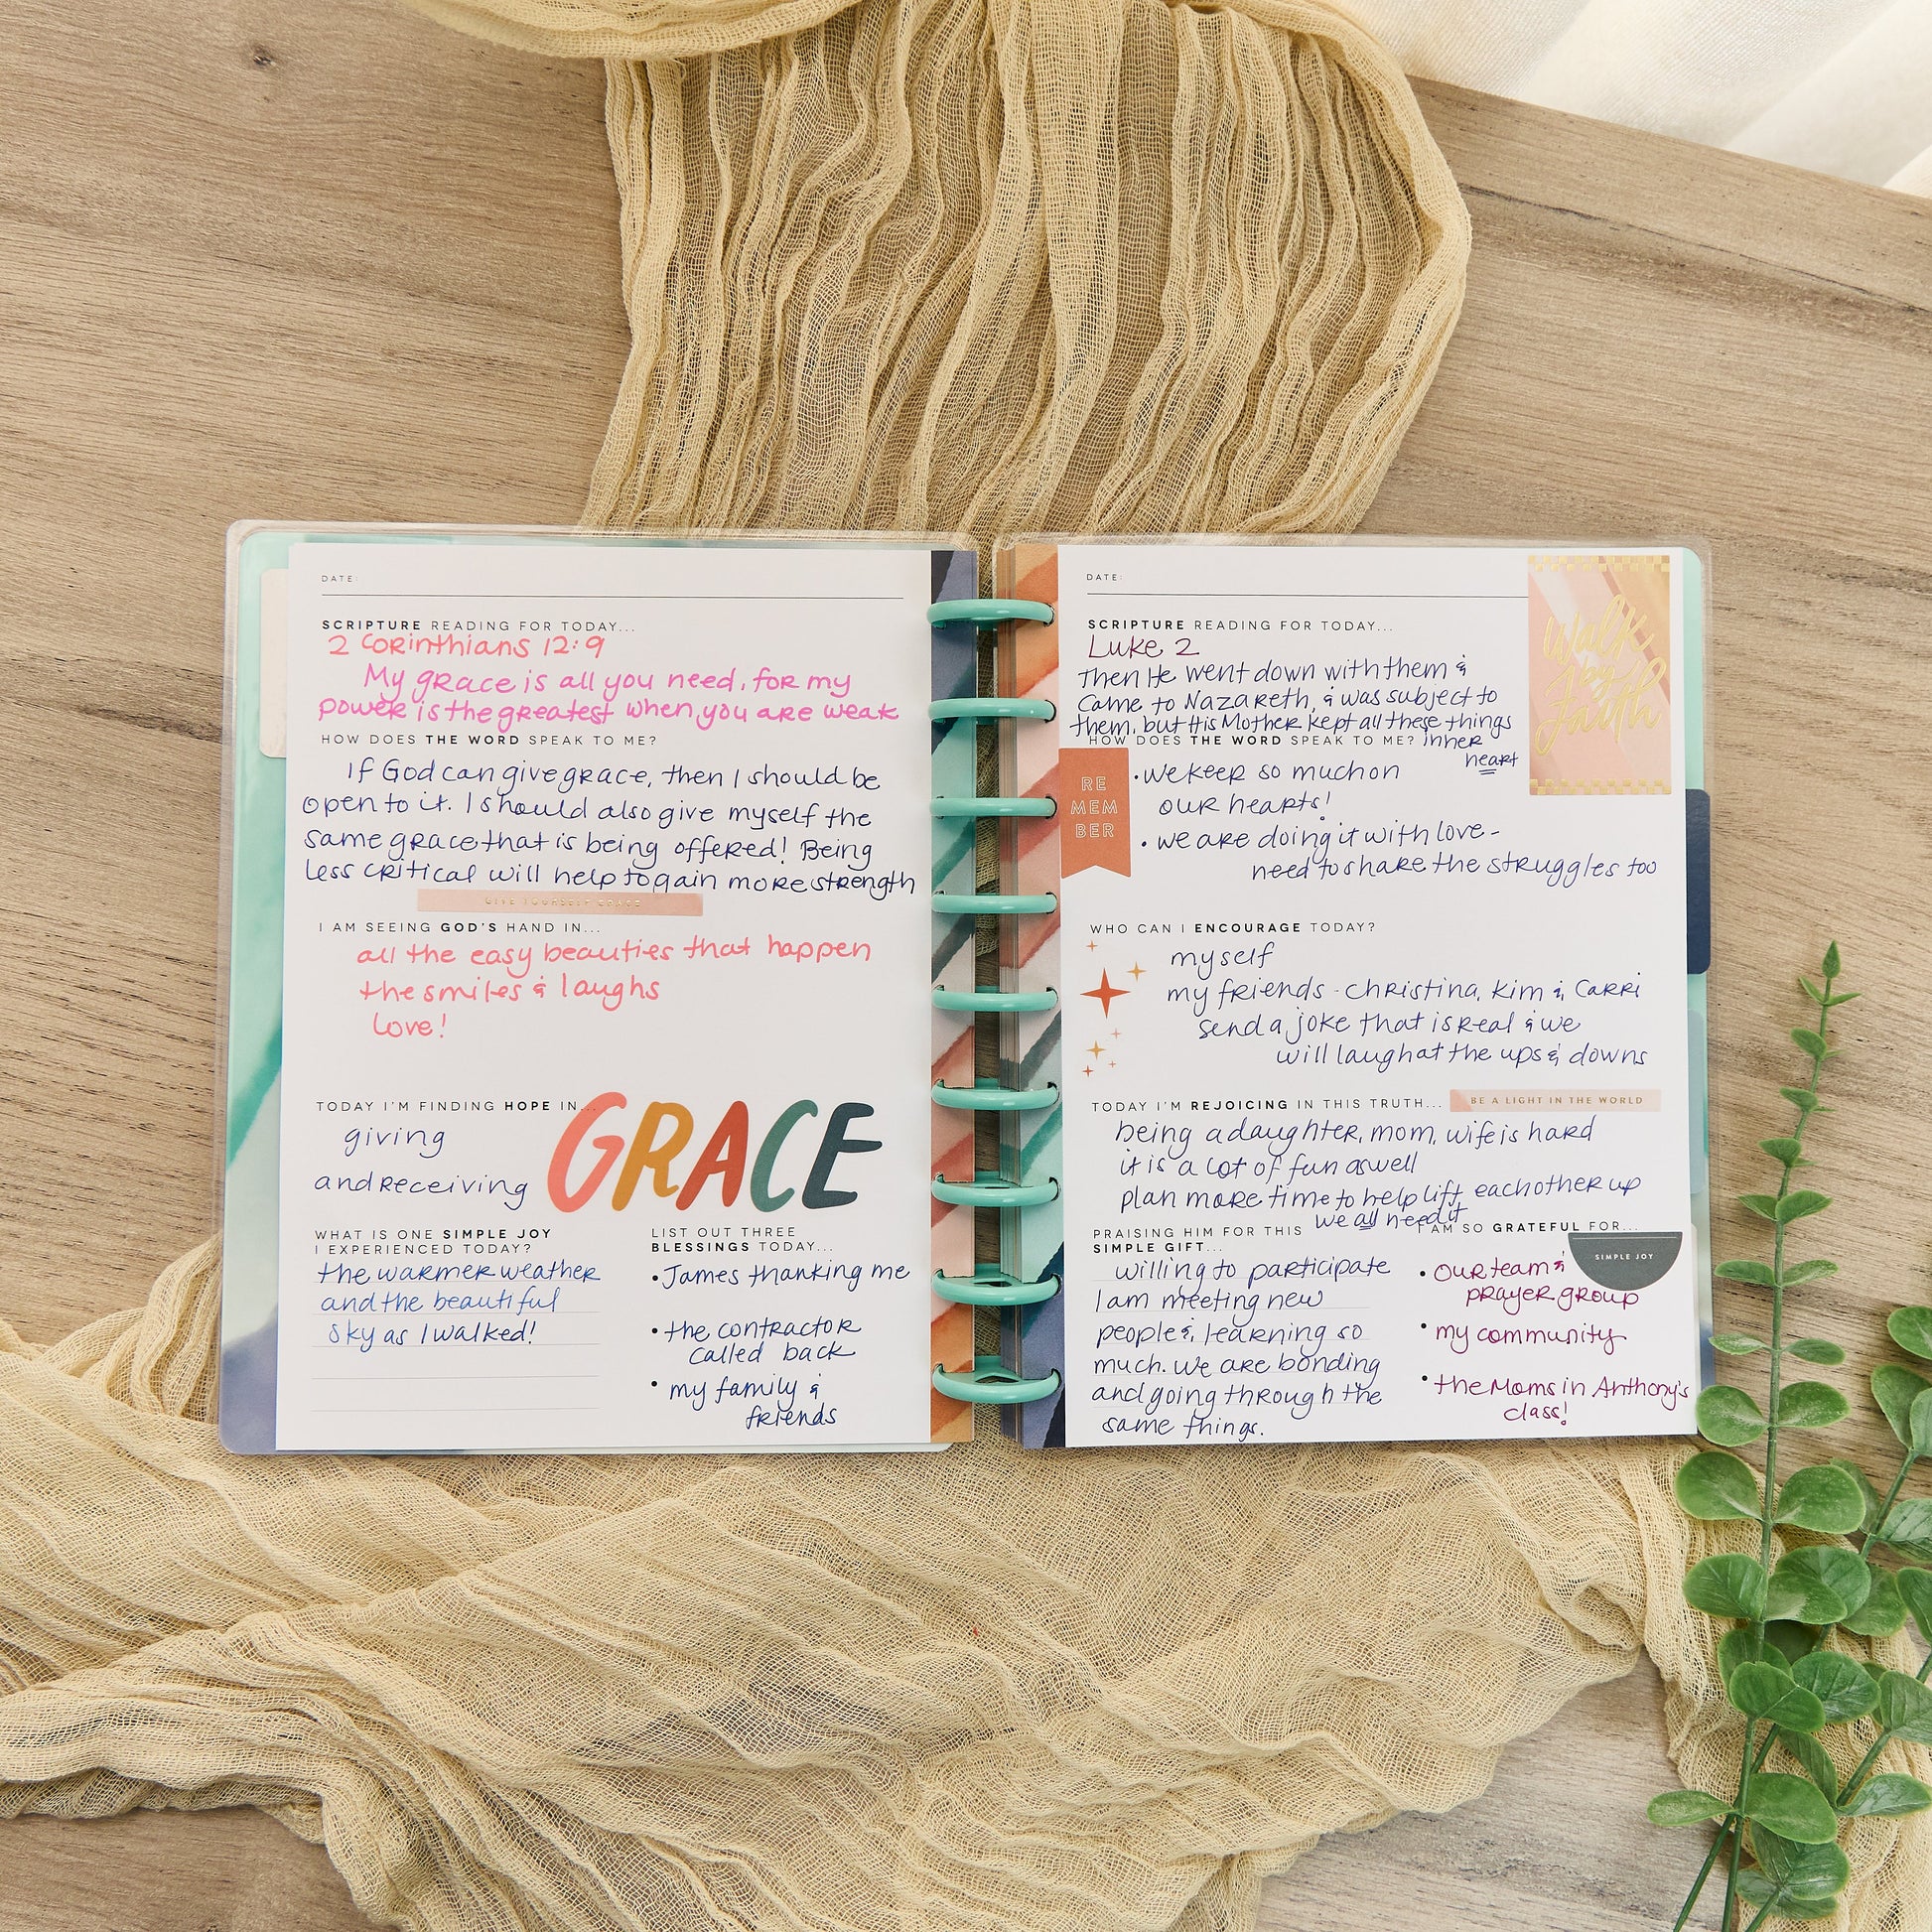 DATE:
SCRIPTURE READING FOR TODAY...
2 Corinthians 12:9
My grace is all you need, for my
power is the greatest when you are weak
HOW DOES THE WORD SPEAK TO ME?
If God can give grace, then I should be
open to it. I should also give myself the
same grace that is being offered! Being
less critical will help to gain more strength
GIVE YOURSELF GRACE
I AM SEEING GOD'S HAND IN...
all the easy beauties that happen
the smiles & laughs
love!
TODAY I'M FINDING HOPE IN...
giving
and receiving
GRACE
WHAT IS ONE SIMPLE JOY
I EXPERIENCED TODAY?
the warmer weather
and the beautiful
sky as I walked!
LIST OUT THREE
BLESSINGS TODAY...
• James thanking me
• the contractor
called back
• my family &
friends
DATE:
SCRIPTURE READING FOR TODAY...
Luke 2
Then He went down with them &
came to Nazareth, & was subject to
them, but His Mother kept all these things
in her
heart
Walk
by
Faith
HOW DOES THE WORD SPEAK TO ME?
RE
MEM
BER
• we keep so much on
our hearts!
• we are doing it with love -
need to share the struggles too
WHO CAN I ENCOURAGE TODAY?
myself
my friends - Christina, Kim & Carri
send a joke that is real & we
will laugh at the ups & downs
TODAY I'M REJOICING IN THIS TRUTH...
BE A LIGHT IN THE WORLD
being a daughter, mom, wife is hard
it is a lot of fun as well
plan more time to help lift each other up
we all need it
PRAISING HIM FOR THIS
SIMPLE GIFT...
willing to participate
I am meeting new
people &, learning so
much. we are bonding
and going through the
same things.
I AM SO GRATEFUL FOR...
SIMPLE JOY
• our team &
prayer group
• my community
• the Moms in Anthony's
class!